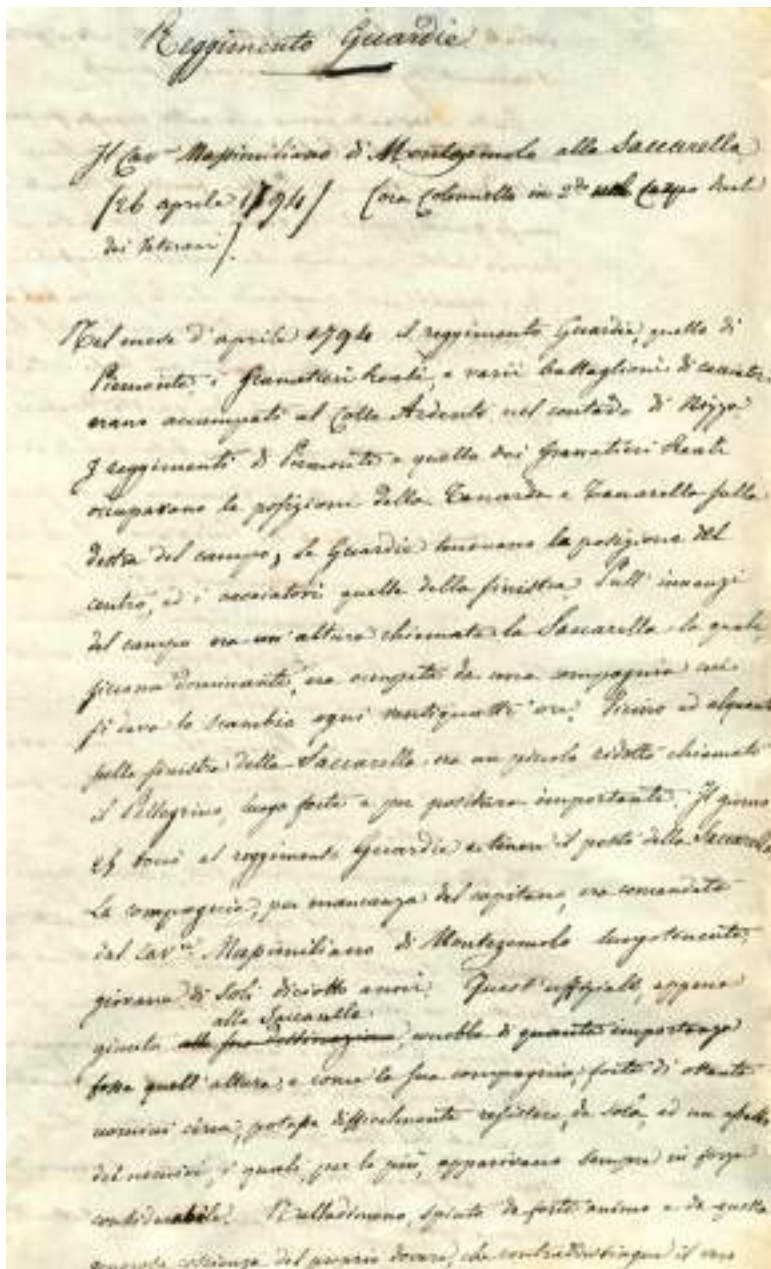 Reggimento Guardie
Il Cav.re Massimiliano di Montezemolo alla Saccarella
(26 aprile 1794) (ora Colonnello in 2do nel Corpo Reale
dei Veterani).
Nel mese d'aprile 1794 il reggimento Guardie, quello di
Piemonte, i Granatieri Reali, e varii battaglioni di cacciat.
erano accampati al Colle Ardente nel contado di Nizza.
I reggimenti di Piemonte e quello dei Granatieri Reali
occupavano le posizioni della Tanarda e Tanarello sulla
destra del campo, le Guardie tenevano la posizione del
centro, ed i cacciatori quella della sinistra. Sull' innanzi
del campo era un'altura chiamata la Saccarella la quale,
siccome dominante, era occupata da una compagnia cui
si dava lo scambio ogni ventiquattr' ore. Vicino ed alquanto
sulla sinistra della Saccarella era un piccolo ridotto chiamato
il Pellegrino, luogo forte e per positura importante. Il giorno
toccò al reggimento Guardie a tenere il posto della Saccarella
La compagnia, per mancanza del capitano, era comandata
dal Cav.re Massimiliano di Montezemolo luogotenente,
giovane di soli diciotto anni. Quest' uffiziale, appena
alla Saccarella
giunto alla sua destinazione, conobbe di quanta importanza
fosse quell' altura, e come la sua compagnia, forte di ottanta
uomini circa, potesse difficilmente resistere, da sola, ad un assalto
dei nemici, i quali, per lo più, apparivano sempre in forze
considerabile. Nulladimeno, spinto da forte animo e da quella
generosa coscienza del proprio dovere, che contraddistingue il vero